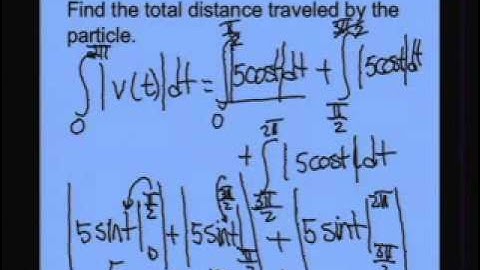 Find the total distance traveled by the
particle.
∫₀^{2π} |v(t)|dt = ∫₀^{π/2} |5cost|dt + ∫_{π/2}^{3π/2} |5cost|dt
+ ∫_{3π/2}^{2π} |5cost|dt
|5sint|₀^{π/2}| + |5sint|_{π/2}^{3π/2}| + |5sint|_{3π/2}^{2π}|
5